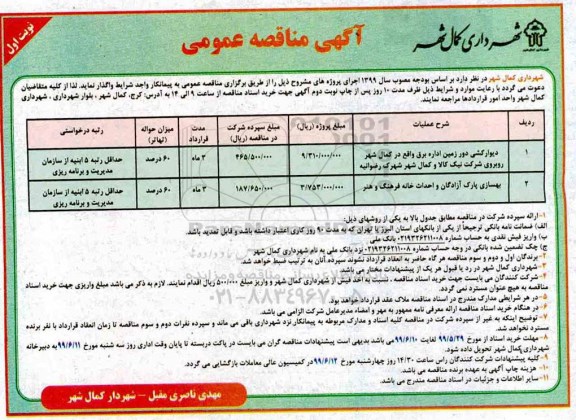 نوبت اول
آگهی مناقصه عمومی
شهرداری کمال شهر
شهرداری کمال شهر در نظر دارد بر اساس بودجه مصوب سال ۱۳۹۹ اجرای پروژه های مشروح ذیل را از طریق برگزاری مناقصه عمومی به پیمانکار واجد شرایط واگذار نماید. لذا از کلیه متقاضیان
دعوت می گردد با رعایت موارد و شرایط ذیل ظرف مدت ۱۰ روز پس از چاپ نوبت دوم آگهی جهت خرید اسناد مناقصه از ساعت ۹ الی ۱۴ به آدرس: کرج، کمال شهر ، بلوار شهرداری ، شهرداری
کمال شهر واحد امور قراردادها مراجعه نمایند.
ردیف شرح عملیات مبلغ پروژه (ریال) مبلغ سپرده شرکت در مناقصه (ریال) مدت قرارداد میزان حواله (تهاتر) رتبه درخواستی
۱ دیوارکشی دور زمین اداره برق واقع در کمال شهر روبروی شرکت نیک کالا و کمال شهر شهرک رضوانیه ۹/۳۱۰/۰۰۰/۰۰۰ ۴۶۵/۵۰۰/۰۰۰ ۳ ماه ۶۰ درصد حداقل رتبه ۵ ابنیه از سازمان مدیریت و برنامه ریزی
۲ بهسازی پارک آزادگان و احداث خانه فرهنگ و هنر ۳/۷۵۳/۰۰۰/۰۰۰ ۱۸۷/۶۵۰/۰۰۰ ۳ ماه ۶۰ درصد حداقل رتبه ۵ ابنیه از سازمان مدیریت و برنامه ریزی
۱- ارائه سپرده شرکت در مناقصه مطابق جدول بالا به یکی از روشهای ذیل:
الف) ضمانت نامه بانکی ترجیحا از یکی از بانکهای استان البرز یا تهران که به مدت ۹۰ روز کاری اعتبار داشته باشد و قابل تمدید باشد.
ب) واریز فیش نقدی به حساب شماره ۰۲۱۹۳۲۶۲۱۱۰۰۸ بانک ملی
ج) چک تضمین شده بانکی در وجه حساب شماره ۰۲۱۹۳۲۶۲۱۱۰۰۸ نزد بانک ملی به نام شهرداری کمال شهر
۲- برندگان اول و دوم و سوم مناقصه هر گاه حاضر به انعقاد قرارداد نشوند سپرده آنان به ترتیب ضبط خواهد شد.
۳- شهرداری کمال شهر در رد یا قبول هر یک از پیشنهادات مختار می باشد.
۴- شرکت کنندگان می بایست جهت خرید اسناد مناقصه، نسبت به اخذ فیش از شهرداری کمال شهر و واریز مبلغ ۵۰۰/۰۰۰ ریال اقدام نمایند. لازم به ذکر می باشد مبلغ واریزی جهت خرید اسناد
مناقصه به هیچ عنوان مسترد نمی گردد.
۵- در هر شرایطی مدارک مندرج در اسناد مناقصه ملاک عقد قرارداد خواهد بود.
۶- در هنگام خرید اسناد مناقصه ارائه معرفی نامه ممهور به مهر و امضاء مدیرعامل شرکت الزامی می باشد.
۷- توضیح اینکه به غیر از سپرده شرکت در مناقصه کلیه اسناد و مدارک مربوطه به پیمانکار نزد شهرداری باقی می ماند و سپرده نفرات دوم و سوم مناقصه تا زمان انعقاد قرارداد با نفر برنده
مسترد نخواهد شد.
۸- مهلت خرید اسناد از مورخ ۹۹/۵/۲۹ لغایت ۹۹/۶/۱۰ می باشد بدیهی است پیشنهادات مناقصه گران می بایست در پاکت دربسته تا پایان وقت اداری روز سه شنبه مورخ ۹۹/۶/۱۱ به دبیرخانه
شهرداری کمال شهر تحویل داده شود.
۹- کلیه پیشنهادات شرکت کنندگان راس ساعت ۱۴/۳۰ روز چهارشنبه مورخ ۹۹/۶/۱۲ در کمیسیون عالی معاملات بازگشایی می گردد.
۱۰- هزینه چاپ آگهی به عهده برنده مناقصه می باشد.
۱۱- سایر اطلاعات و جزئیات در اسناد مناقصه مندرج می باشد.
۰۲۱-۸۸۳۴۹۶۷۰
مهدی ناصری مقبل – شهردار کمال شهر